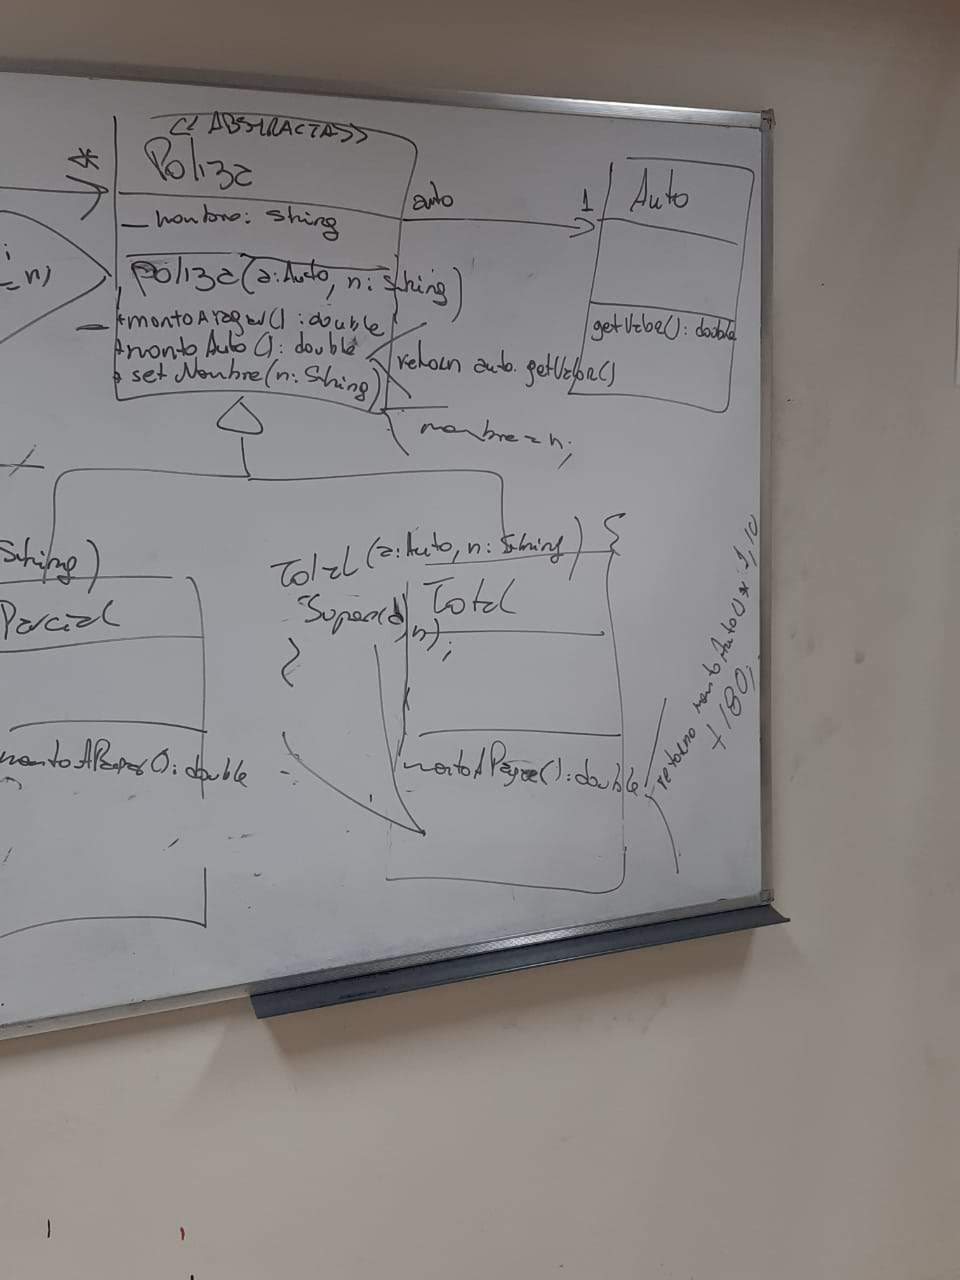 <<ABSTRACTA>>
Poliza
*
- nombre: String
Poliza(a:Auto, n:String)
+montoAPagar():double
+montoAuto():double
+ setNombre(n:String)
auto
1
Auto
getValor():double
return auto.getValor()
nombre=n;
= n)
String)
Parcial
montoAPagar():double
Total(a:Auto, n:String) {
Super(a,n);
}
Total
montoAPagar():double
retorno montoAuto()*1,10
+180;